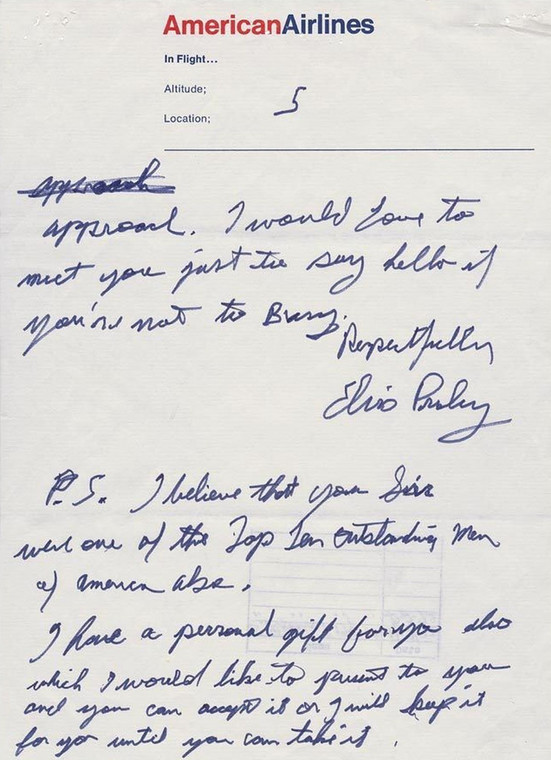 AmericanAirlines
In Flight...
Altitude;
5
Location;
approach
approach. I would love to
meet you just to say hello if
you're not to Busy.
Respectfully
Elvis Presley
P.S. I believe that you Sir
were one of the Top Ten outstanding Men
of america also.
I have a personal gift for you also
which I would like to present to you
and you can accept it or I will keep it
for you until you can take it.